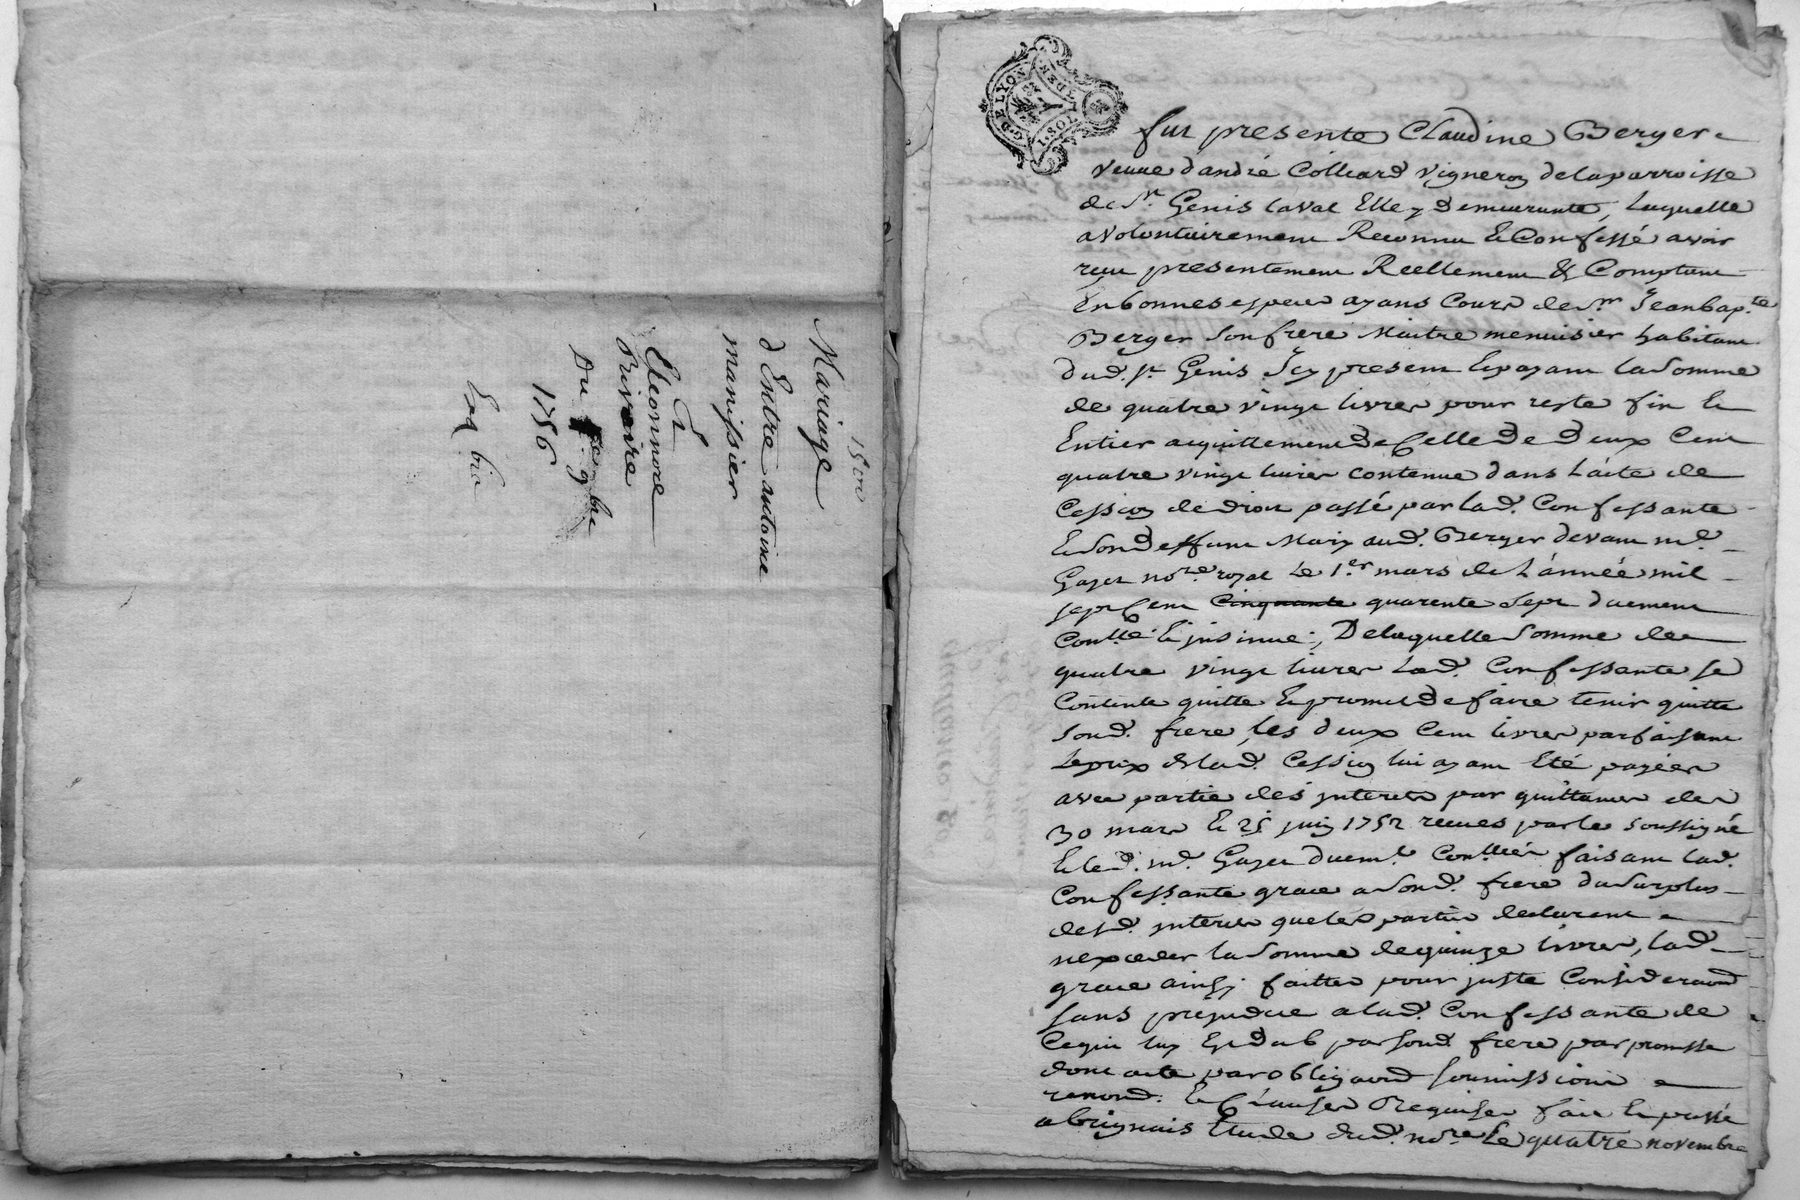 Mariage
d'Entre antoine
manissier
Et
Eleonnore
Privaire
Du 9bre
1756
G. DE LYON
fut presente Claudine Berger
veuve d'andré Colliard vigneron de la parroisse
de St. Genis laval Elle y demeurante, laquelle
a volontairement Reconnu Et Confessé avoir
reçu presentement Reellement & Comptant
En bonnes especes ayans Cours de Sr. Jean bap.te
Berger son frere Maitre menuisier habitant
dud. St Genis Icy present Et payant la Somme
de quatre vingt livres pour reste fin Et
Entier acquittement de Celle de deux Cent
quatre vingt livres contenue dans l'acte de
Cession de droit passé par lad. Confessante
Et son deffunt Mary aud. Berger devant me.
Gayet no.re royal Le 1.er mars de L'année mil
sept Cent Cinquante quarente Sept duement
Con.llé Et insinué; De laquelle Somme de
quatre vingt livres Lad. Confessante se
Contente quitte Et promet de faire tenir quitte
sond. frere, les deux Cent livres parfaisant
Le prix de lad. Cession lui ayant Eté payées
avec partie des interets par quittances des
30 mars Et 25 juin 1752 recues par le soussigné
Et led. me. Gayet duem.t Con.llées faisant lad.
Confessante grace a sond. frere du Surplus
desd. interets que les parties declarent
n'exceder la Somme de quinze livres, lad.
grace ainsy faitte pour juste Consideraon
sans prejudice a lad. Confessante de
Ce qui luy Est dub par sond. frere par promesse
dont acte par obligaon soumissions
renond. Et Clauses Requises fait Et passé
a brignais Etude dud. no.re Le quatre novembre